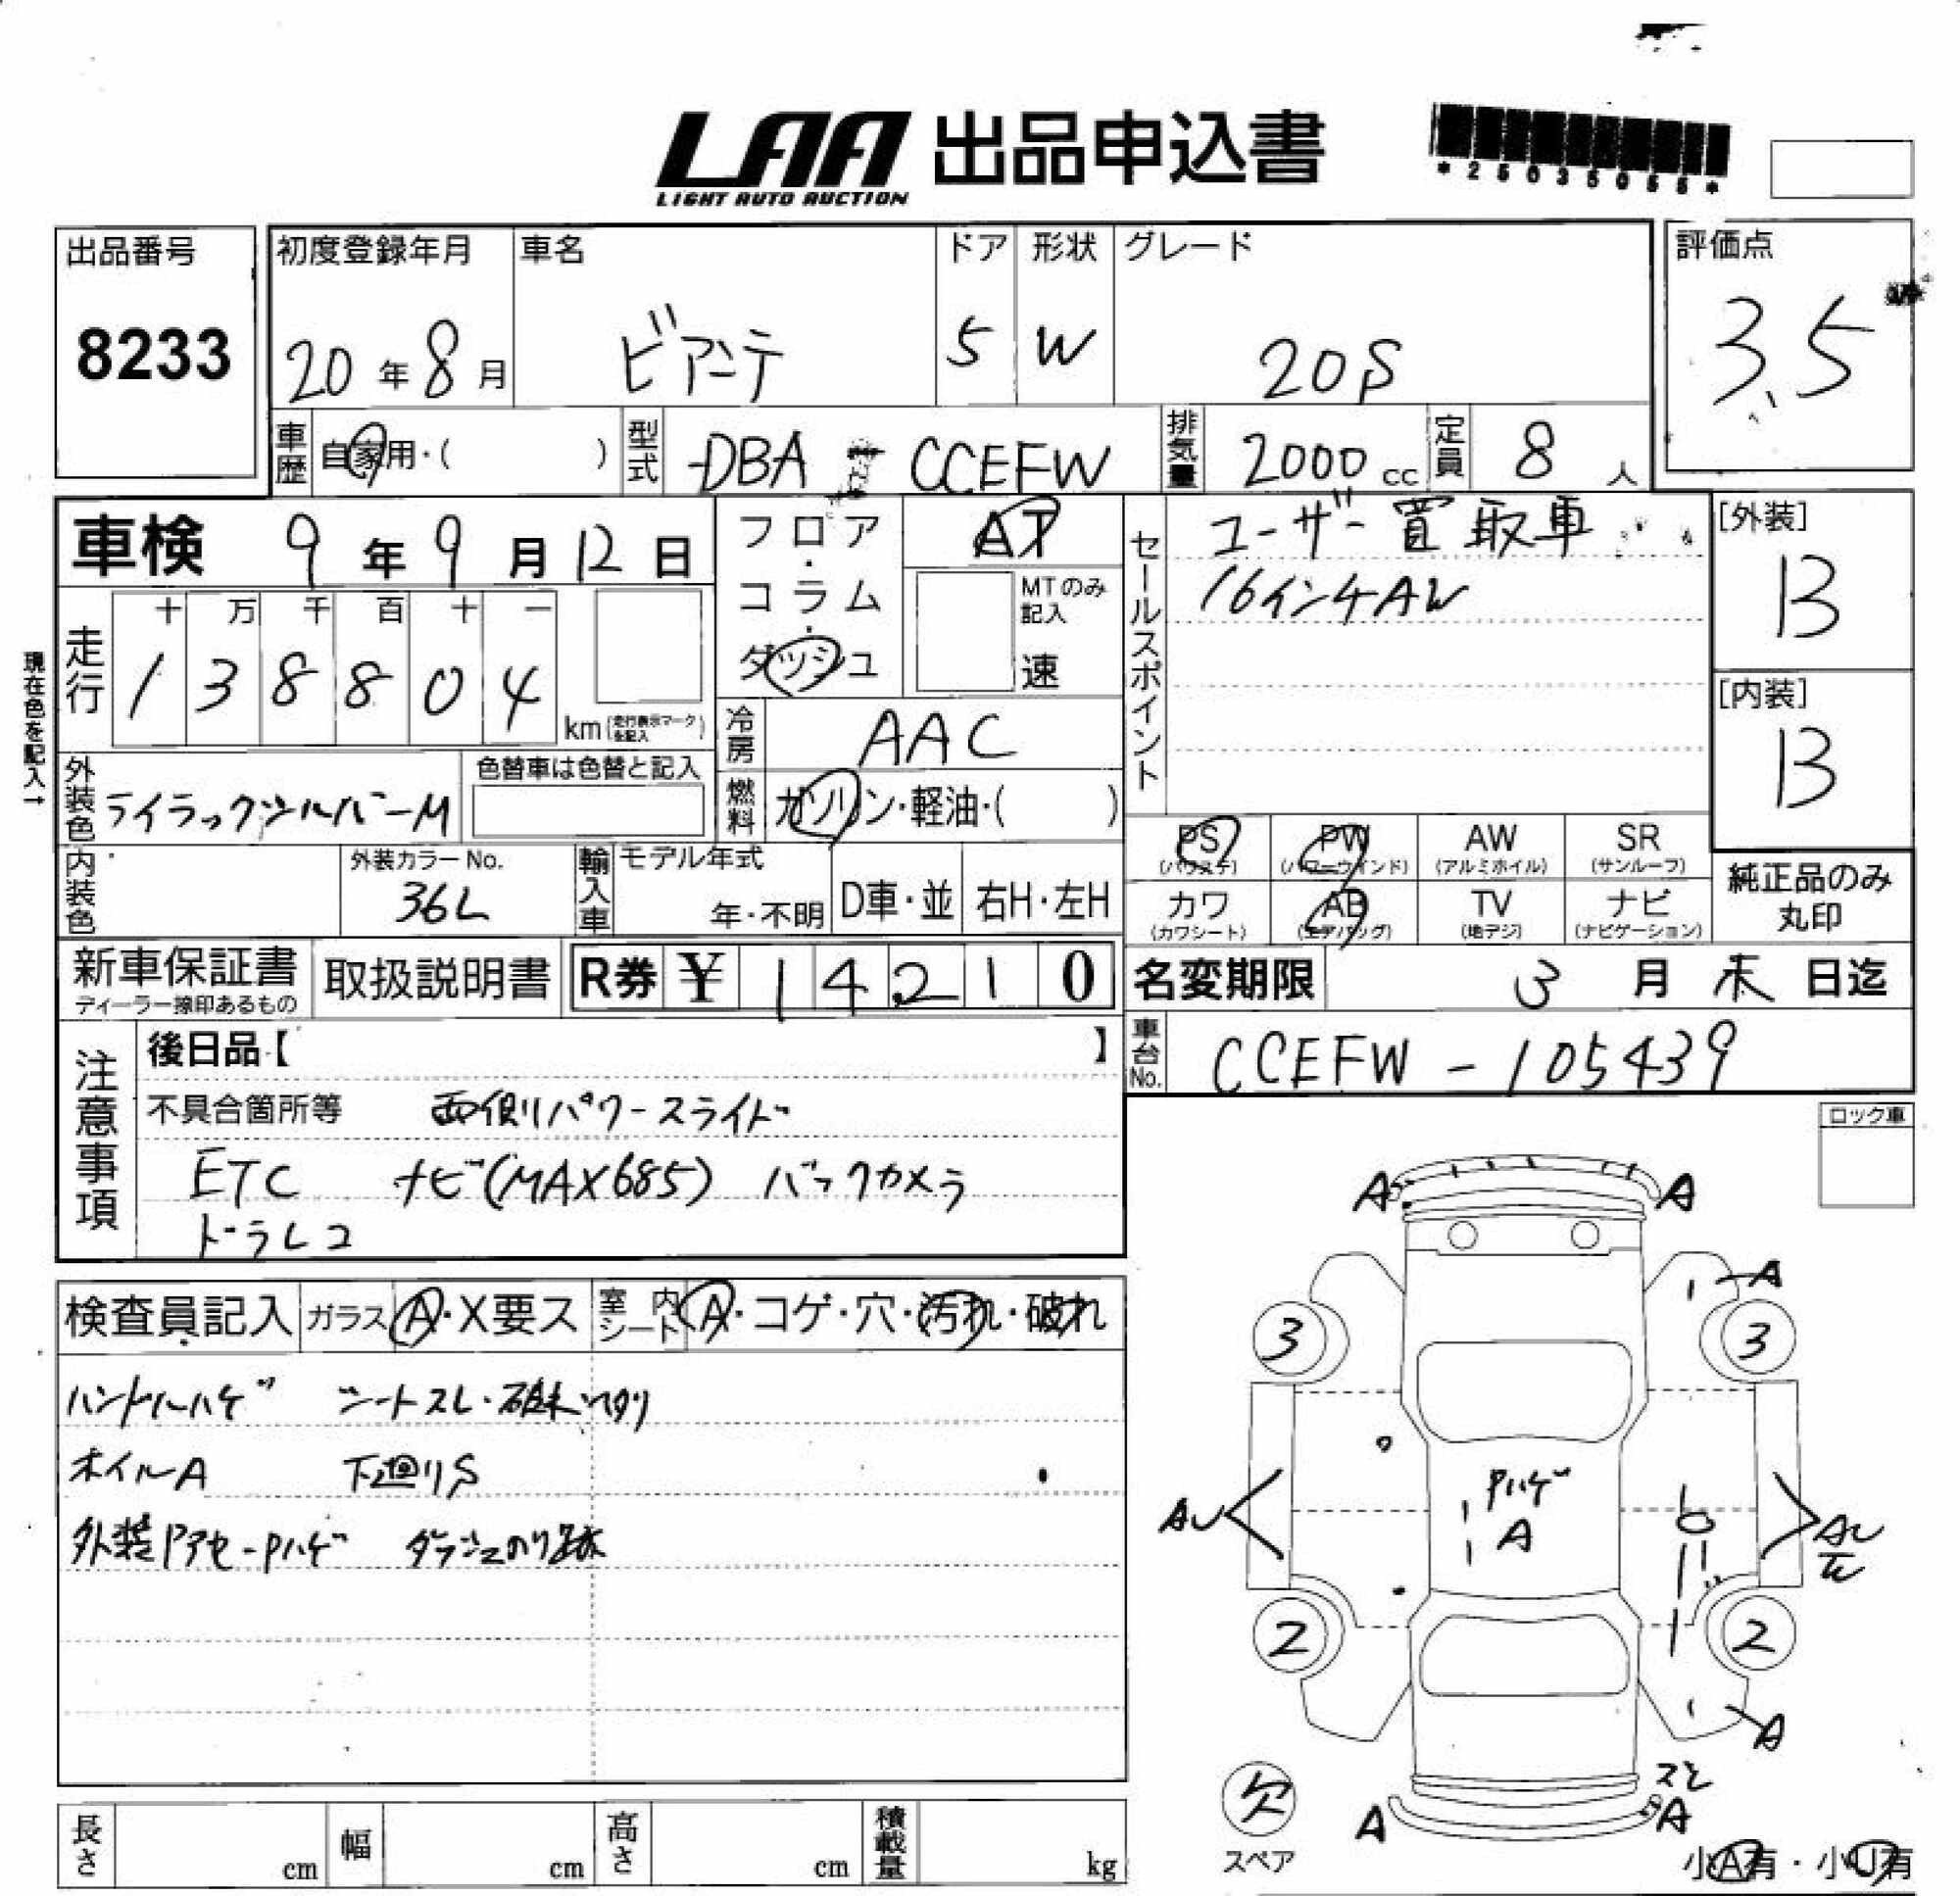 LAA 出品申込書
LIGHT AUTO AUCTION
*25035055*
出品番号
8233
初度登録年月
20年8月
車名
ビアンテ
ドア
5
形状
W
グレード
20S
評価点
3.5
車歴
自家用・( )
型式
DBA - CCEFW
排気量
2000cc
定員
8人
車検 9年9月12日
フロア・コラム・ダッシュ
AT
MTのみ記入
速
セールスポイント
ユーザー買取車
16インチAW
[外装]
B
[内装]
B
現在色を記入→
走行
十 万 千 百 十 一
1 3 8 8 0 4
km(走行表示マークを記入)
冷房
AAC
燃料
ガソリン・軽油・( )
外装色
ライラックシルバーM
色替車は色替と記入
内装色
外装カラーNo.
36L
輸入車
モデル年式
年・不明
D車・並
右H・左H
PS
(パワステ)
PW
(パワーウインド)
AW
(アルミホイル)
SR
(サンルーフ)
カワ
(カワシート)
AB
(エアバッグ)
TV
(地デジ)
ナビ
(ナビゲーション)
純正品のみ
丸印
新車保証書
ディーラー捺印あるもの
取扱説明書
R券 ¥ 14210
名変期限 3月末日迄
車台No.
CCEFW-105439
注意事項
後日品【 】
不具合箇所等 両側パワースライド
ETC ナビ(MAX685) バックカメラ
ドラレコ
ロック車
検査員記入
ガラス
A・X要ス
室内シート
A・コゲ・穴・汚れ・破れ
ハンドルハゲ シートスレ・
ホイルA 下廻りS
外装ドアモールPハゲ ダッシュのり跡
A A
A
3 3
Pハゲ
A
AU AU
2 2
A
欠
スペア
A A
小A有・小U有
長さ cm
幅 cm
高さ cm
積載量 kg